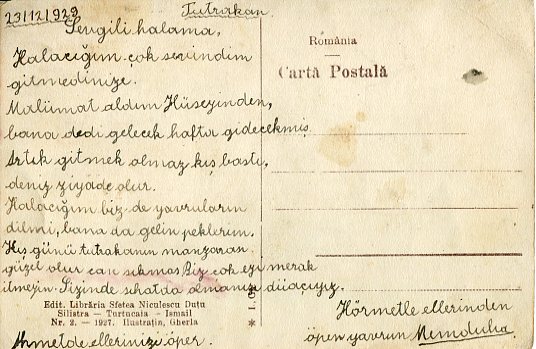 23/12/1929 Tutrakan.
Sevgili halama,
Halacığım çok sevindim
gitmedinize.
Malümat aldım Hüseyinden,
bana dedi gelecek hafta gidecekmiş
Artık gitmek olmaz kış bastı,
deniz ziyade olur.
Halacığım biz de yavruların
dilmi, bana da gelin peklerim.
Kış günü tutrakanın manzarası
güzel olur can sıkmas Biz çok eyi merak
itmeyin. Sizinde sıhatda olmanıza düacıyız
Hörmetle ellerinden
öpen yavrun Memduha.
Ahmetde ellerinizi öper.
România
Cartă Postală
Edit. Librăria Sfetea Niculescu Duțu
Silistra — Turtucaia — Ismail
Nr. 2. — 1927. Ilustrația, Gherla